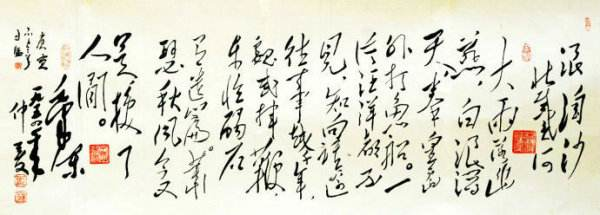 浪淘沙
北戴河
大雨落幽
燕，白浪滔
天，秦皇岛
外打鱼船。一
片汪洋都不
见，知向谁边
往事越千年，
魏武挥鞭，
东临碣石
有遗篇。萧
瑟秋风今又
是，换了
人间。
毛泽东
一九五四年
仲夏
庚寅